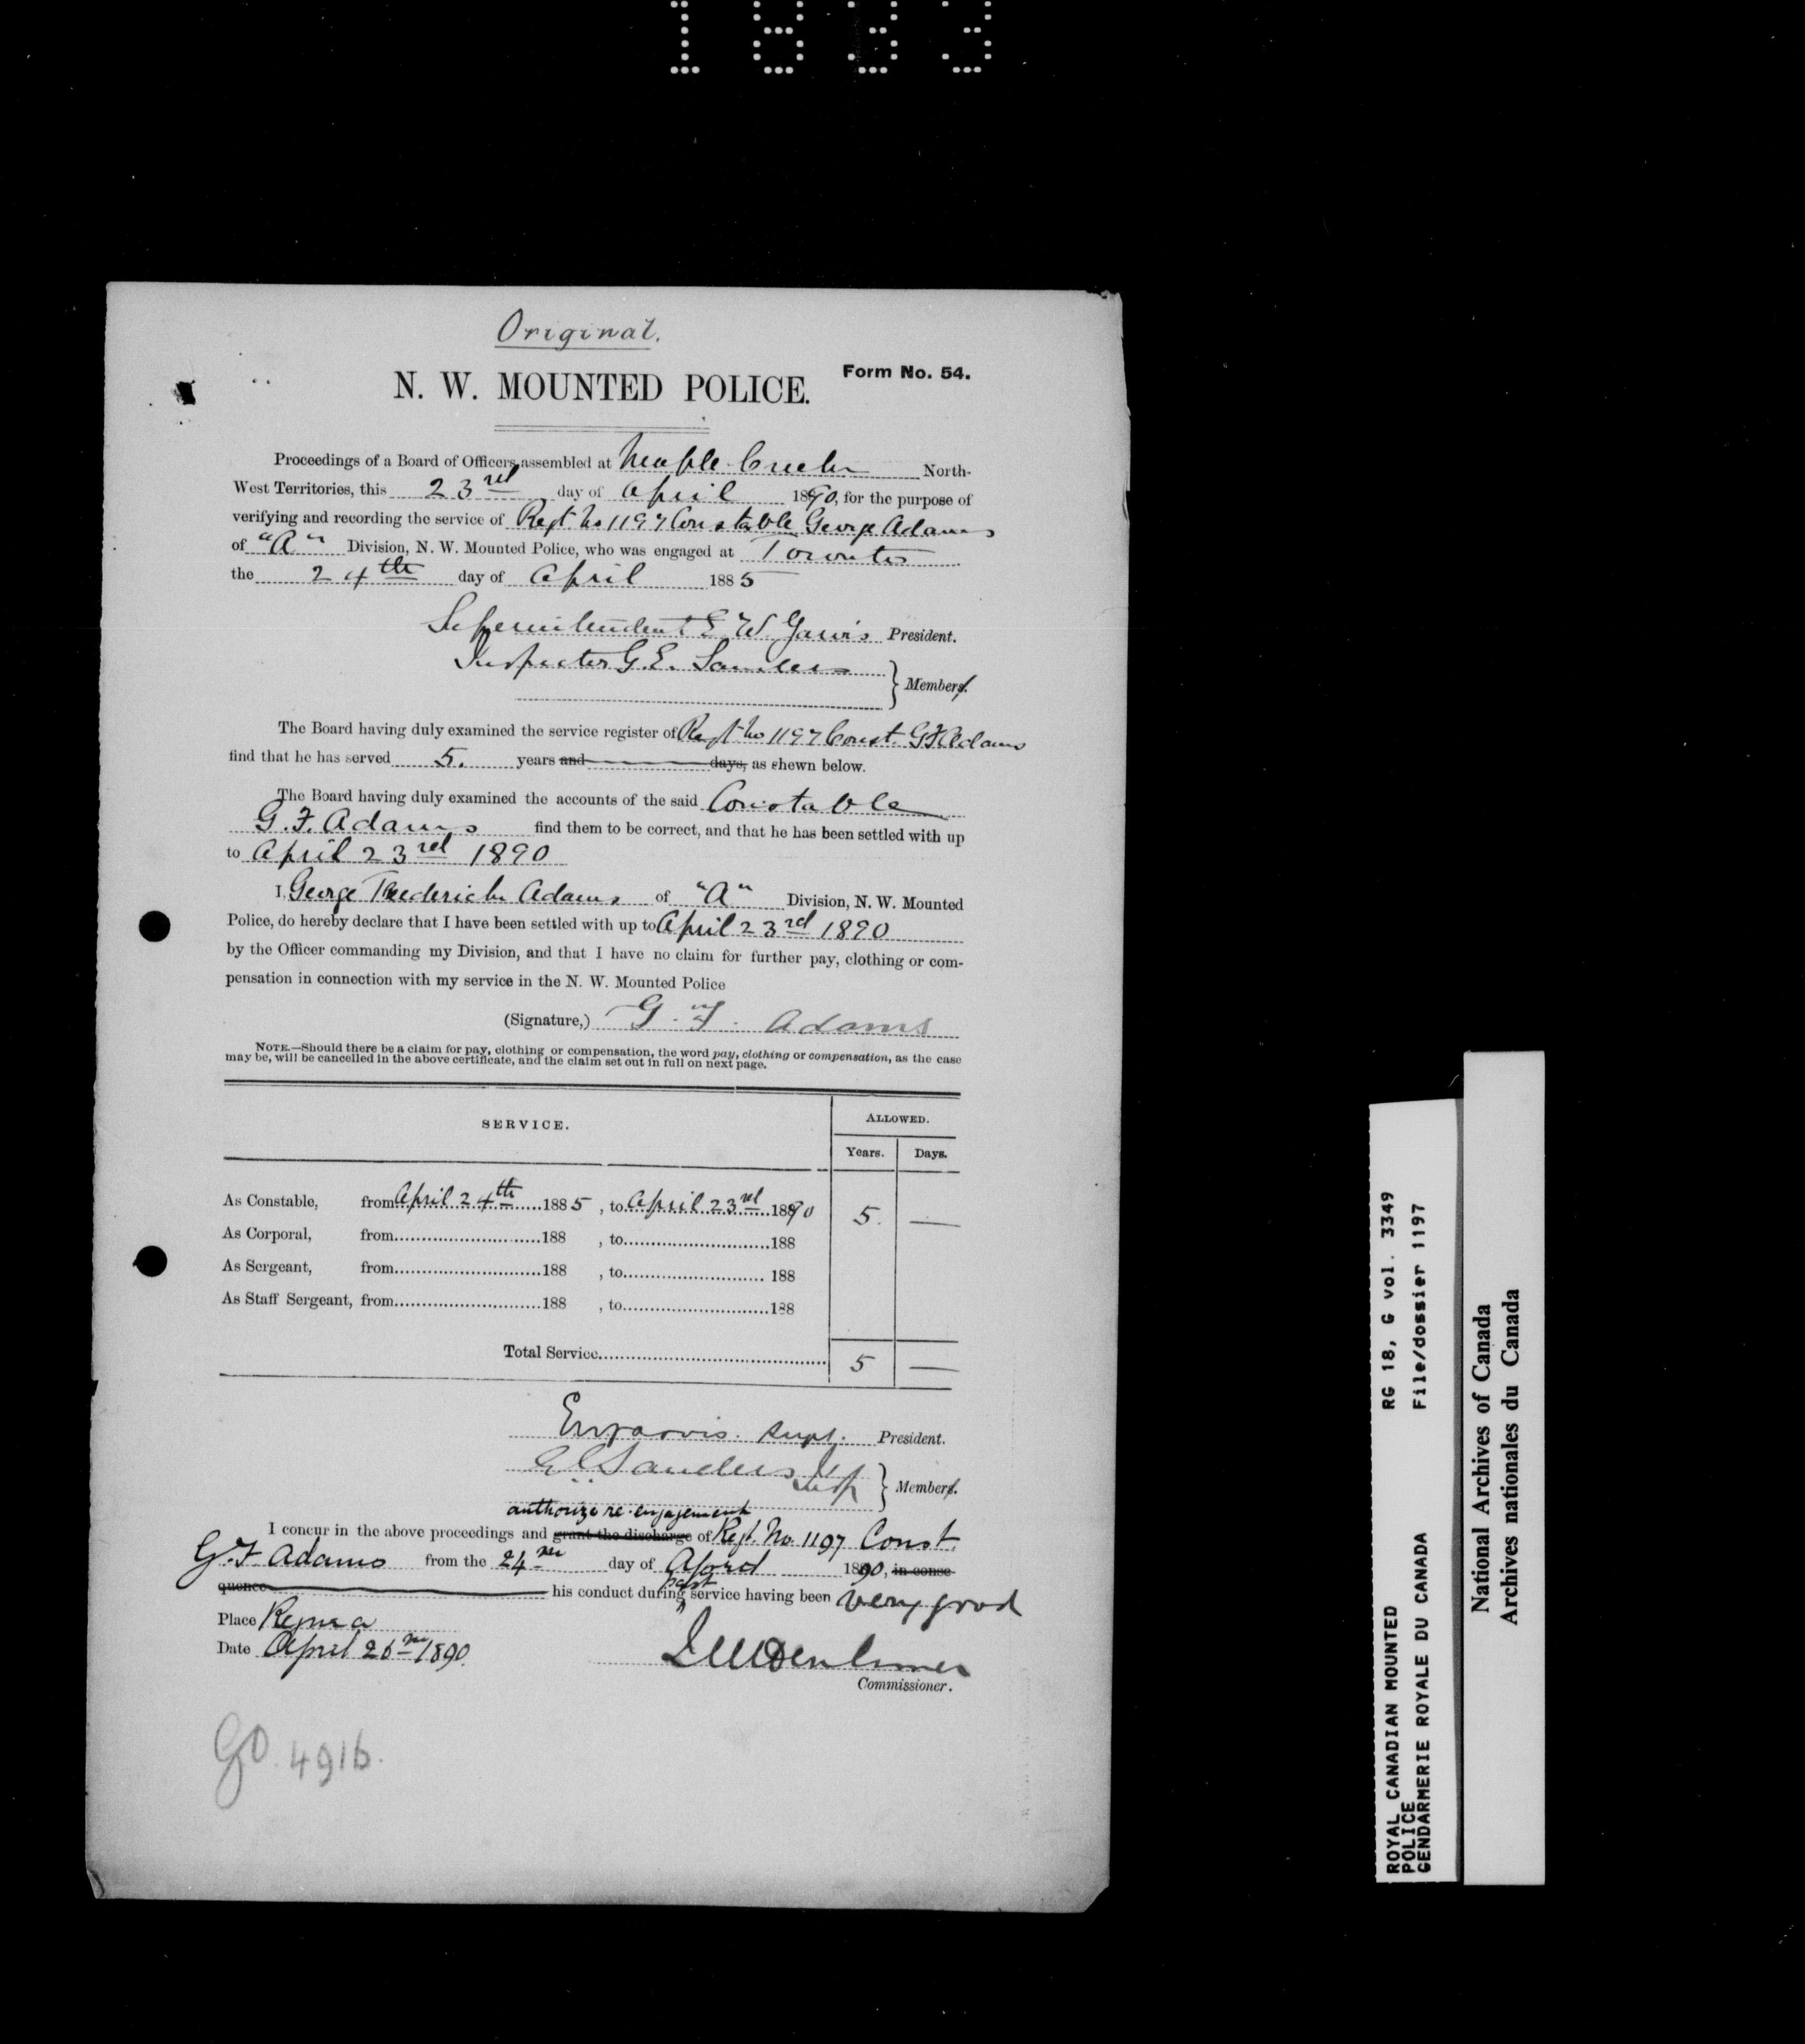 1833
Original.
N. W. MOUNTED POLICE.
Form No. 54.
Proceedings of a Board of Officers assembled at Maple Creek North-
West Territories, this 23rd day of April 1890, for the purpose of
verifying and recording the service of Regt. No 1197 Constable George Adams
of "A" Division, N. W. Mounted Police, who was engaged at Toronto
the 24th day of April 1885
Superintendent E W. Jarvis President.
Inspector G. E. Sanders
Members.
The Board having duly examined the service register of Regt No 1197 Const. G F Adams
find that he has served 5. years and days, as shewn below.
The Board having duly examined the accounts of the said Constable
G. F. Adams find them to be correct, and that he has been settled with up
to April 23rd 1890
I, George Frederick Adams of "A" Division, N. W. Mounted
Police, do hereby declare that I have been settled with up to April 23rd 1890
by the Officer commanding my Division, and that I have no claim for further pay, clothing or com-
pensation in connection with my service in the N. W. Mounted Police
(Signature,) G. F. Adams
NOTE.—Should there be a claim for pay, clothing or compensation, the word pay, clothing or compensation, as the case
may be, will be cancelled in the above certificate, and the claim set out in full on next page.
SERVICE.
ALLOWED.
Years. Days.
As Constable, from April 24th 1885, to April 23rd 1890 5. —
As Corporal, from 188 , to 188
As Sergeant, from 188 , to 188
As Staff Sergeant, from 188 , to 188
Total Service 5 —
EWJarvis. Supt. President.
G E Sanders Insp
Members.
authorize re-engagement
I concur in the above proceedings and grant the discharge of Regt. No. 1197 Const.
G. F Adams from the 24th day of April 1890, in conse-
quence his conduct during past service having been very good
Place Regina
Date April 26th 1890.
Commissioner.
GO. 4916.
RG 18, G vol. 3349
File/dossier 1197
ROYAL CANADIAN MOUNTED
POLICE
GENDARMERIE ROYALE DU CANADA
National Archives of Canada
Archives nationales du Canada